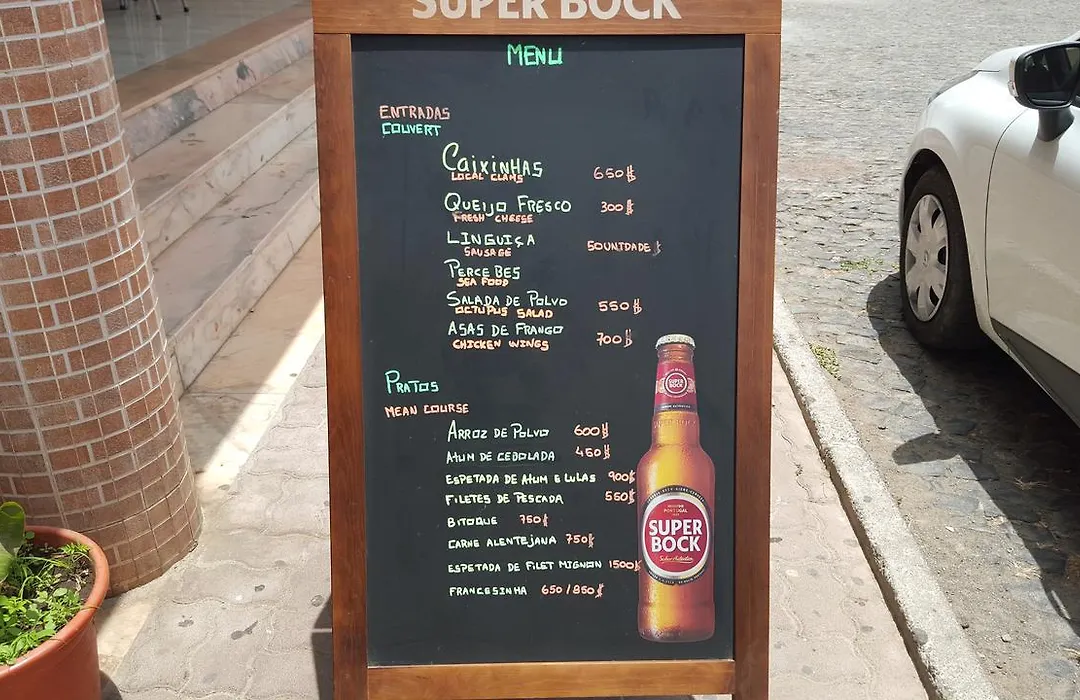 SUPER BOCK
MENU
ENTRADAS
COUVERT
CAIXINHAS 650$
LOCAL CLAMS
QUEIJO FRESCO 300$
FRESH CHEESE
LINGUIÇA 50UNIDADE$
SAUSAGE
PERCEBES
SEA FOOD
SALADA DE POLVO 550$
OCTUPUS SALAD
ASAS DE FRANGO 700$
CHICKEN WINGS
PRATOS
MEAN COURSE
ARROZ DE POLVO 600$
ATUM DE CEBOLADA 450$
ESPETADA DE ATUM E LULAS 900$
FILETES DE PESCADA 550$
BITOQUE 750$
CARNE ALENTEJANA 750$
ESPETADA DE FILET MIGNON 1500$
FRANCESINHA 650/850$
SUPER
BOCK
PORTUGAL
SUPER
BOCK
Sabor Autêntico